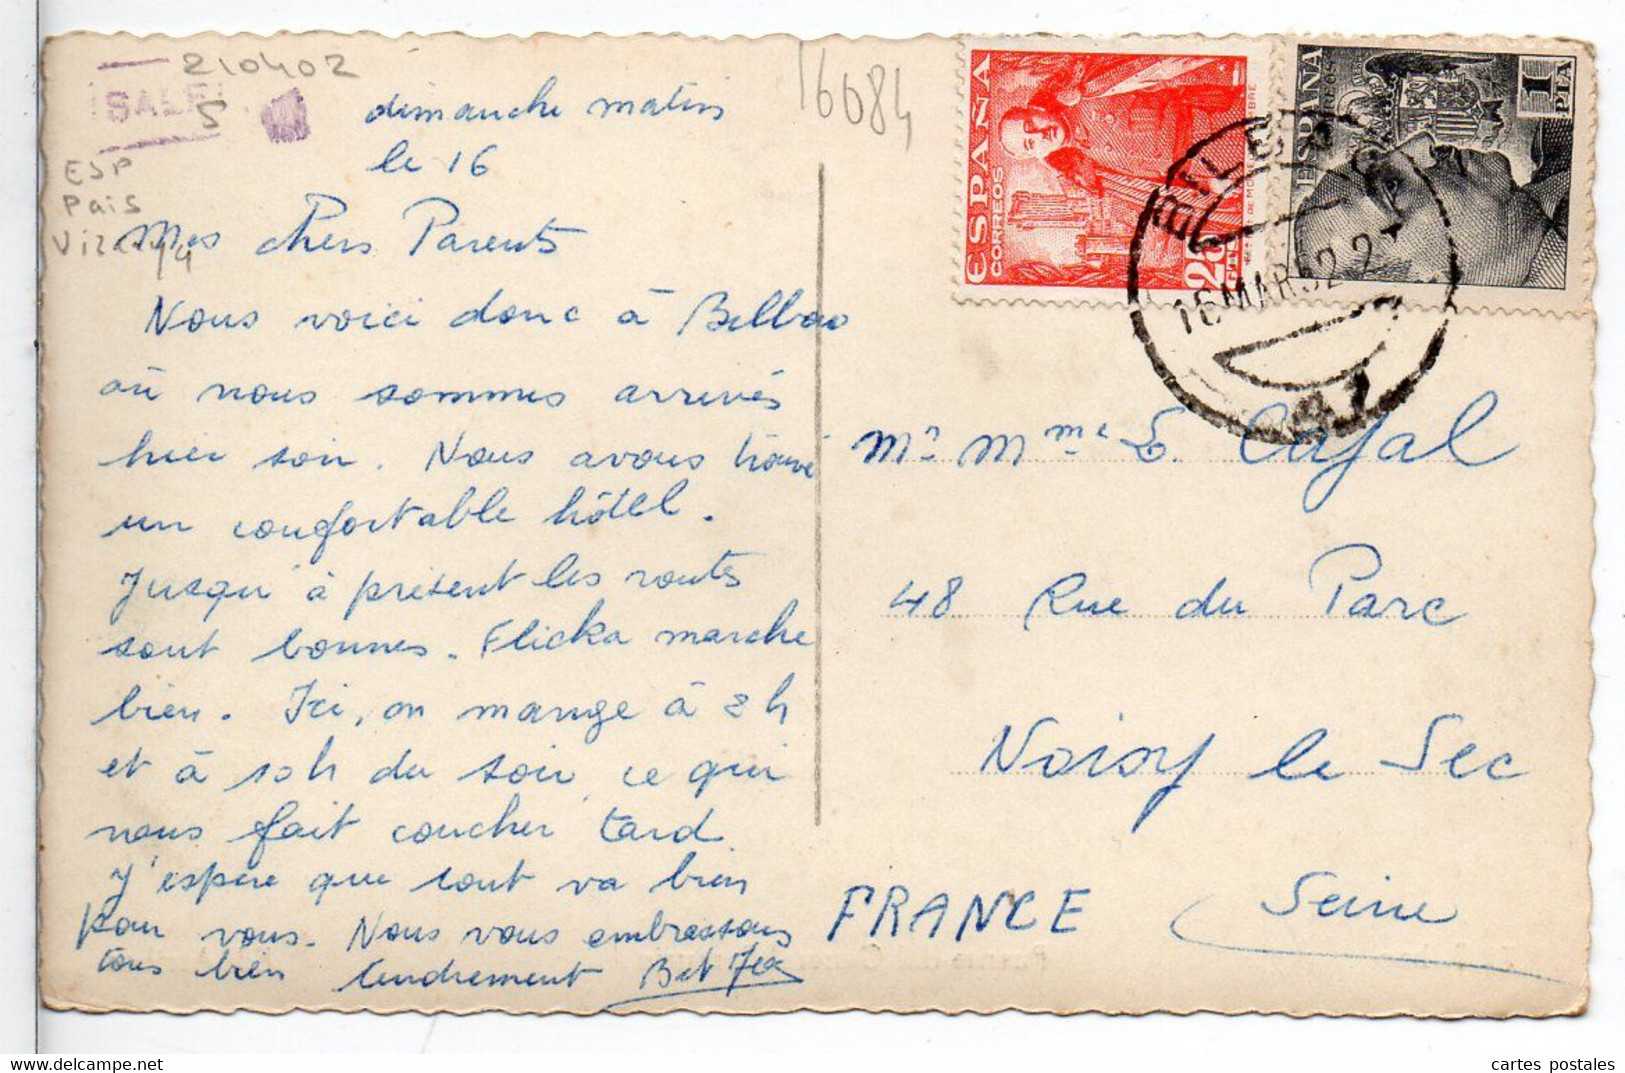 210402
SALE
5
ESP
Pais
Vizcaya
16084
dimanche matin
le 16
Mes chers Parents
Nous voici donc à Bilbao
où nous sommes arrivés
hier soir. Nous avons trouvé
un confortable hôtel.
Jusqu'à présent les routes
sont bonnes. Flicka marche
bien. Ici, on mange à 2h
et à 10h du soir, ce qui
nous fait coucher tard
J'espère que tout va bien
pour vous. Nous vous embrassons
tous bien tendrement
ESPAÑA
CORREOS
25
CTS
ESPAÑA
CORREOS
1
PTA
BILBAO
16 MAR 52
Mr Mme E. Cajal
48 Rue du Parc
Noisy le Sec
Seine
FRANCE
cartes postales